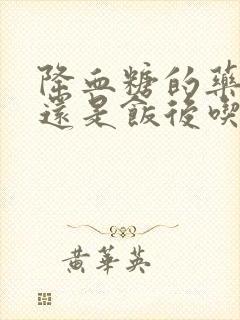 降血糖的藥
還是飯後喫
黃華英